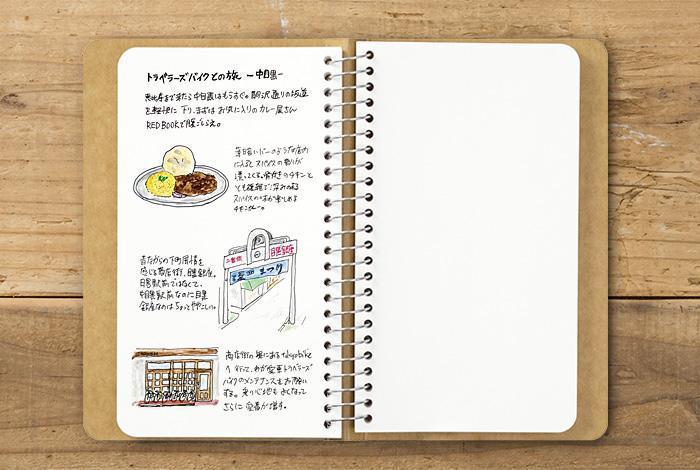 トラベラーズバイクとの旅 ー中目黒ー
恵比寿まで来たら中目黒はもうすぐ。駒沢通りの坂道
を軽快に下り、まずはお気に入りのカレー屋さん
RED BOOKで腹ごしらえ。
薄暗いバーのような店内
に入ると スパイスの香りが
漂ってくる。骨付きのチキンと
とても複雑で深みのある
スパイスの味が楽しめる
チキンカレー。
昔ながらの下町風情を
感じる商店街、目黒銀座。
目黒駅前ではなくて、
中目黒駅前なのに目黒
銀座なのはちょっとややこしい。
二番街
目黒銀座
まつり
商店街の奥にあるtokyobike
へ行って、わが愛車トラベラーズ
バイクのメンテナンスもお願い
する。乗り心地もよくなって
さらに愛着が増す。